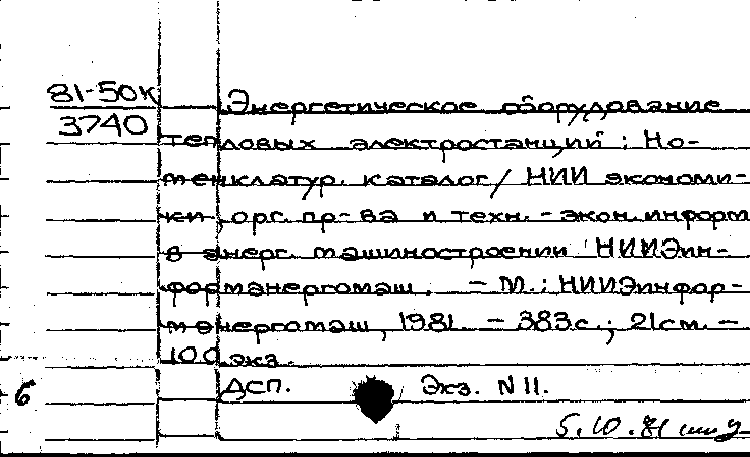 81-50к
3740
Энергетическое оборудование
тепловых электростанций : Но-
менклатур. каталог / НИИ экономи-
ки, орг. пр-ва и техн.-экон. информ.
в энерг. машиностроении НИИЭин-
формэнергомаш. - М. : НИИЭинфор-
мэнергомаш, 1981. - 383с. ; 21см. -
100 экз.
ДСП. Экз. N 11.
б
5.10.81